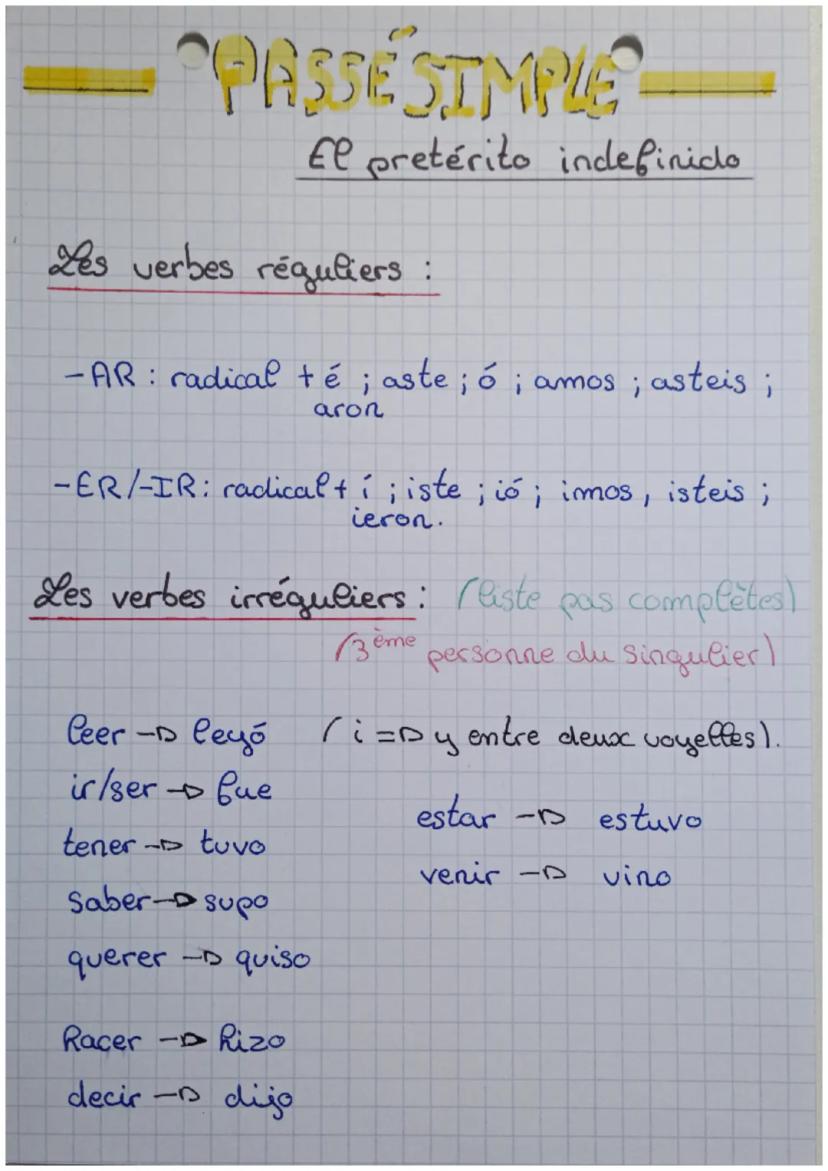 PASSÉ SIMPLE
El pretérito indefinido
Les verbes réguliers :
-AR : radical + é ; aste ; ó ; amos ; asteis ;
aron
-ER/-IR : radical + í ; iste ; ió ; imos , isteis ;
ieron.
Les verbes irréguliers : (liste pas complètes)
(3ème personne du singulier)
leer → leyó (i => y entre deux voyelles).
ir/ser → fue
estar → estuvo
tener → tuvo
venir → vino
saber → supo
querer → quiso
hacer → hizo
decir → dijo